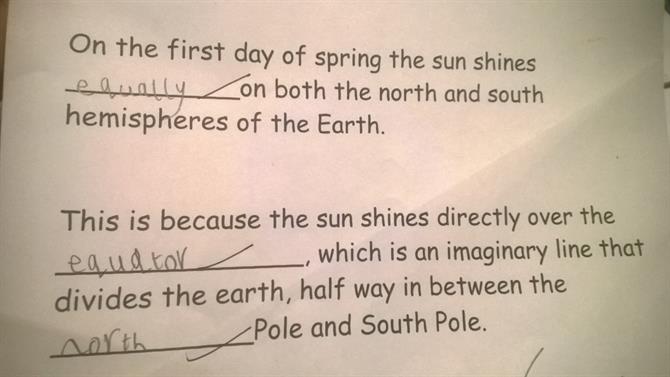 On the first day of spring the sun shines
equally on both the north and south
hemispheres of the Earth.
This is because the sun shines directly over the
equator, which is an imaginary line that
divides the earth, half way in between the
north Pole and South Pole.